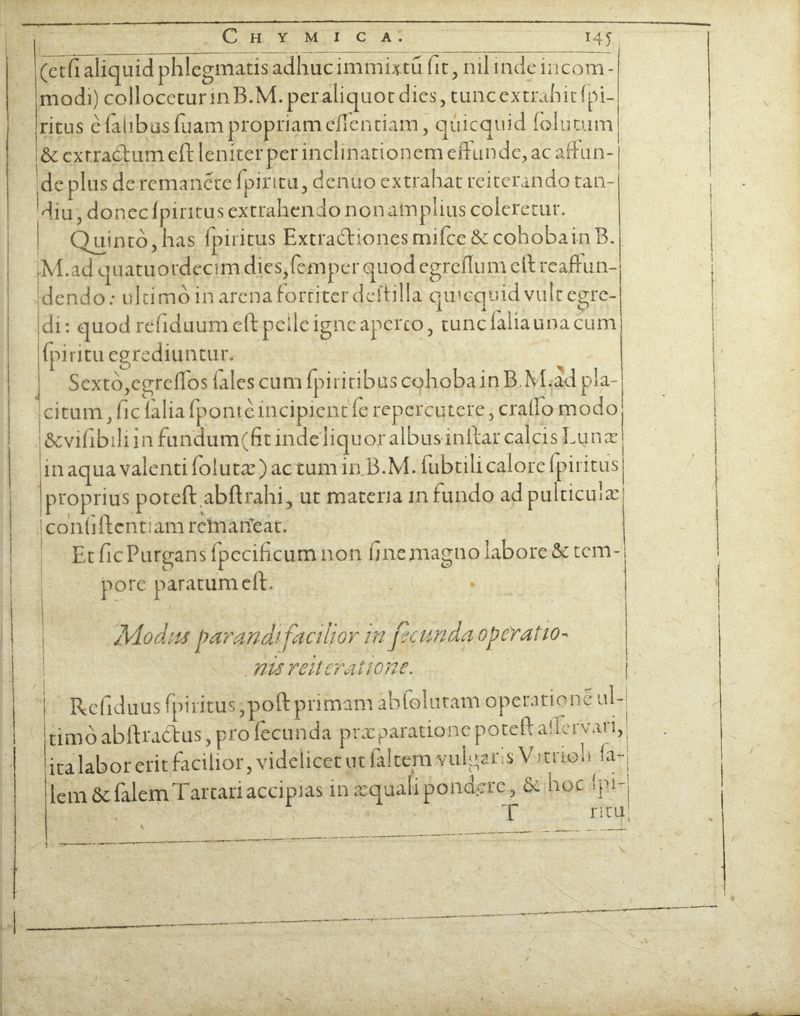 CHYMICA. 145
(etſi aliquid phlegmatis adhuc immixtũ ſit, nil inde incom-
modi) collocetur in B.M. per aliquot dies, tunc extrahit ſpi-
ritus è ſalibus ſuam propriam eſſentiam, quicquid ſolutum
& extractum eſt leniter per inclinationem effunde, ac affun-
de plus de remanẽte ſpiritu, denuo extrahat reiterando tan-
diu, donec ſpiritus extrahendo non amplius coleretur.
Quintò, has ſpiritus Extractiones miſce & cohoba in B.
M. ad quatuordecim dies, ſemper quod egreſſum eſt reaffun-
dendo: ultimò in arena fortiter deſtilla quicquid vult egre-
di: quod reſiduum eſt pelle igne aperto, tunc ſalia una cum
ſpiritu egrediuntur.
Sextò, egreſſos ſales cum ſpiritibus cohoba in B.M. ad pla-
citum, ſic ſalia ſpontè incipient ſe repercutere, craſſo modo
& viſibili in fundum (fit inde liquor albus inſtar calcis Lunæ
in aqua valenti ſolutæ) ac tum in B.M. ſubtili calore ſpiritus
proprius poteſt abſtrahi, ut materia in fundo ad pulticulæ
conſiſtentiam remaneat.
Et ſic Purgans ſpecificum non ſine magno labore & tem-
pore paratum eſt.
Modus parandi facilior in ſecunda operatio-
nis reiteratione.
Reſiduus ſpiritus, poſt primam abſolutam operationẽ ul-
timò abſtractus, pro ſecunda præparatione poteſt aſſervari,
ita labor erit facilior, videlicet ut ſaltem vulgaris Vitrioli ſa-
lem & ſalem Tartari accipias in æquali pondere, & hoc ſpi-
T ritu